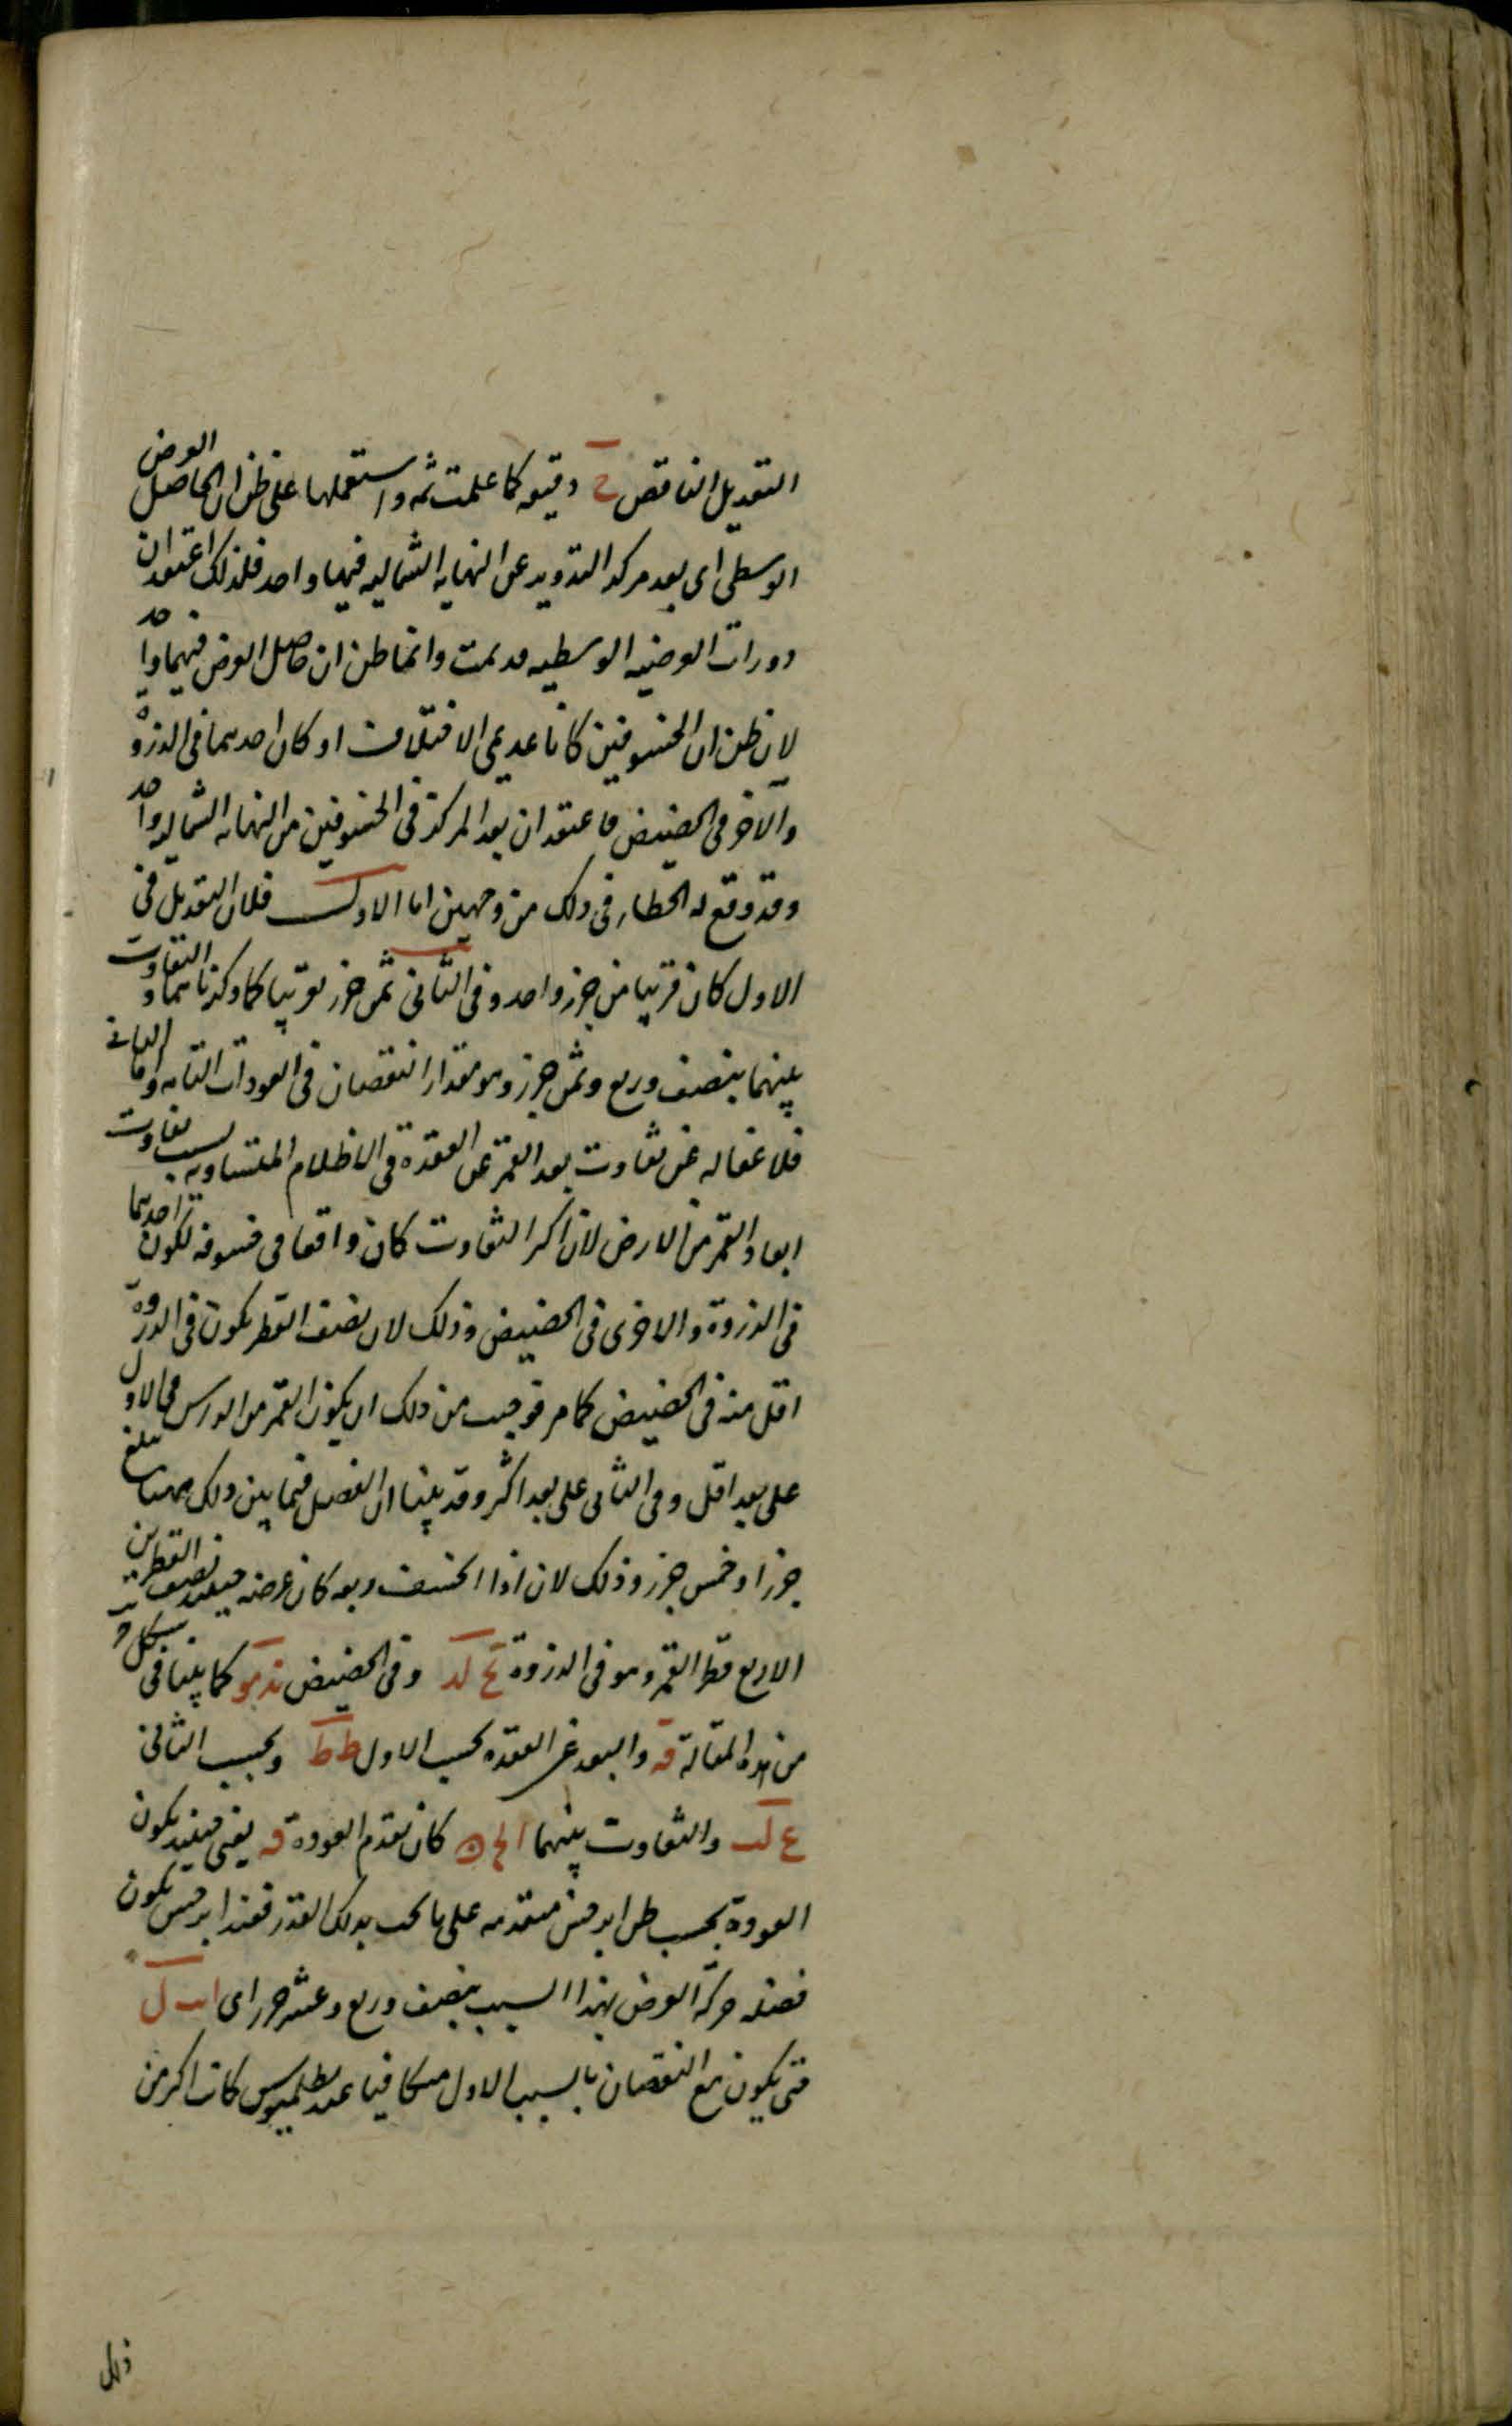 التعديل الناقص ح دقيقه كما علمت ثمه واستعملها على ظن ان الحاصل العرض
الوسطى اى بعد مركز التدوير عن النهايه الشماليه فيهما واحد فلذلك اعتقد ان
دورات العرضيه الوسطيه قد تمت وانما ظن ان حاصل العرض فيهما واحد
لان ظن ان الخسوفين كانا عديمى الاختلاف او كان احدهما فى الذروة
والآخر فى الحضيض فاعتقد ان بعد المركز فى الخسوفين من النهايه الشماليه واحد
وقد وقع له الخطاء فى ذلك من وجهين اما الاول فلان التعديل فى
الاول كان قريبا من جزء واحد وفى الثانى ثمن جزء تقريبا كما ذكرناهما والتفاوت
بينهما بنصف وربع وثمن جزء وهو مقدار النقصان فى العودات التامه واما الثانى
فلاغفاله عن تفاوت بعد القمر عن العقدة فى الاظلام المتساويه بسبب تفاوت
ابعاد القمر من الارض لان اكثر التفاوت كان واقعا فى خسوفه لكون احدهما
فى الذروة والاخرى فى الحضيض وذلك لان نصف القطر يكون فى الذروة
اقل منه فى الحضيض كما مر فوجب من ذلك ان يكون القمر من الراس فى الاول
على بعد اقل وفى الثانى على بعد اكثر وقد بينا ان الفضل فيما بين ذلك يبلغ
جزءا وخمس جزء وذلك لان اذا انخسف ربعه كان عرضه حينئذ نصف القطرين
الاربع قطر القمر وهو فى الذروة لد وفى الحضيض ند مو كما بينا فى شكل
من هذه المقالة فه والبعد عن العقده بحسب الاول ط ط وبحسب الثانى
والتفاوت بينهما كان تقدم العودة فه يعنى حينئذ يكون
العودة بحسب ظن ابرخس متقدمه على ما يجب بذلك القدر فعند ابرخس يكون
فضله حركة العرض بهذا السبب بنصف وربع وعشر جزء اى
حتى يكون مع النقصان بالسبب الاول متكافيا عند بطلميوس كان اكثر من
ذلك